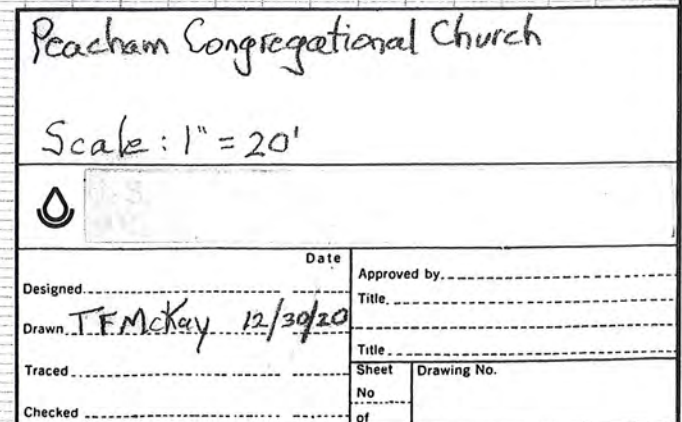 Peacham Congregational Church
Scale: 1" = 20'
Date
Designed
Drawn TFMcKay 12/30/20
Traced
Checked
Approved by
Title
Title
Sheet No of
Drawing No.